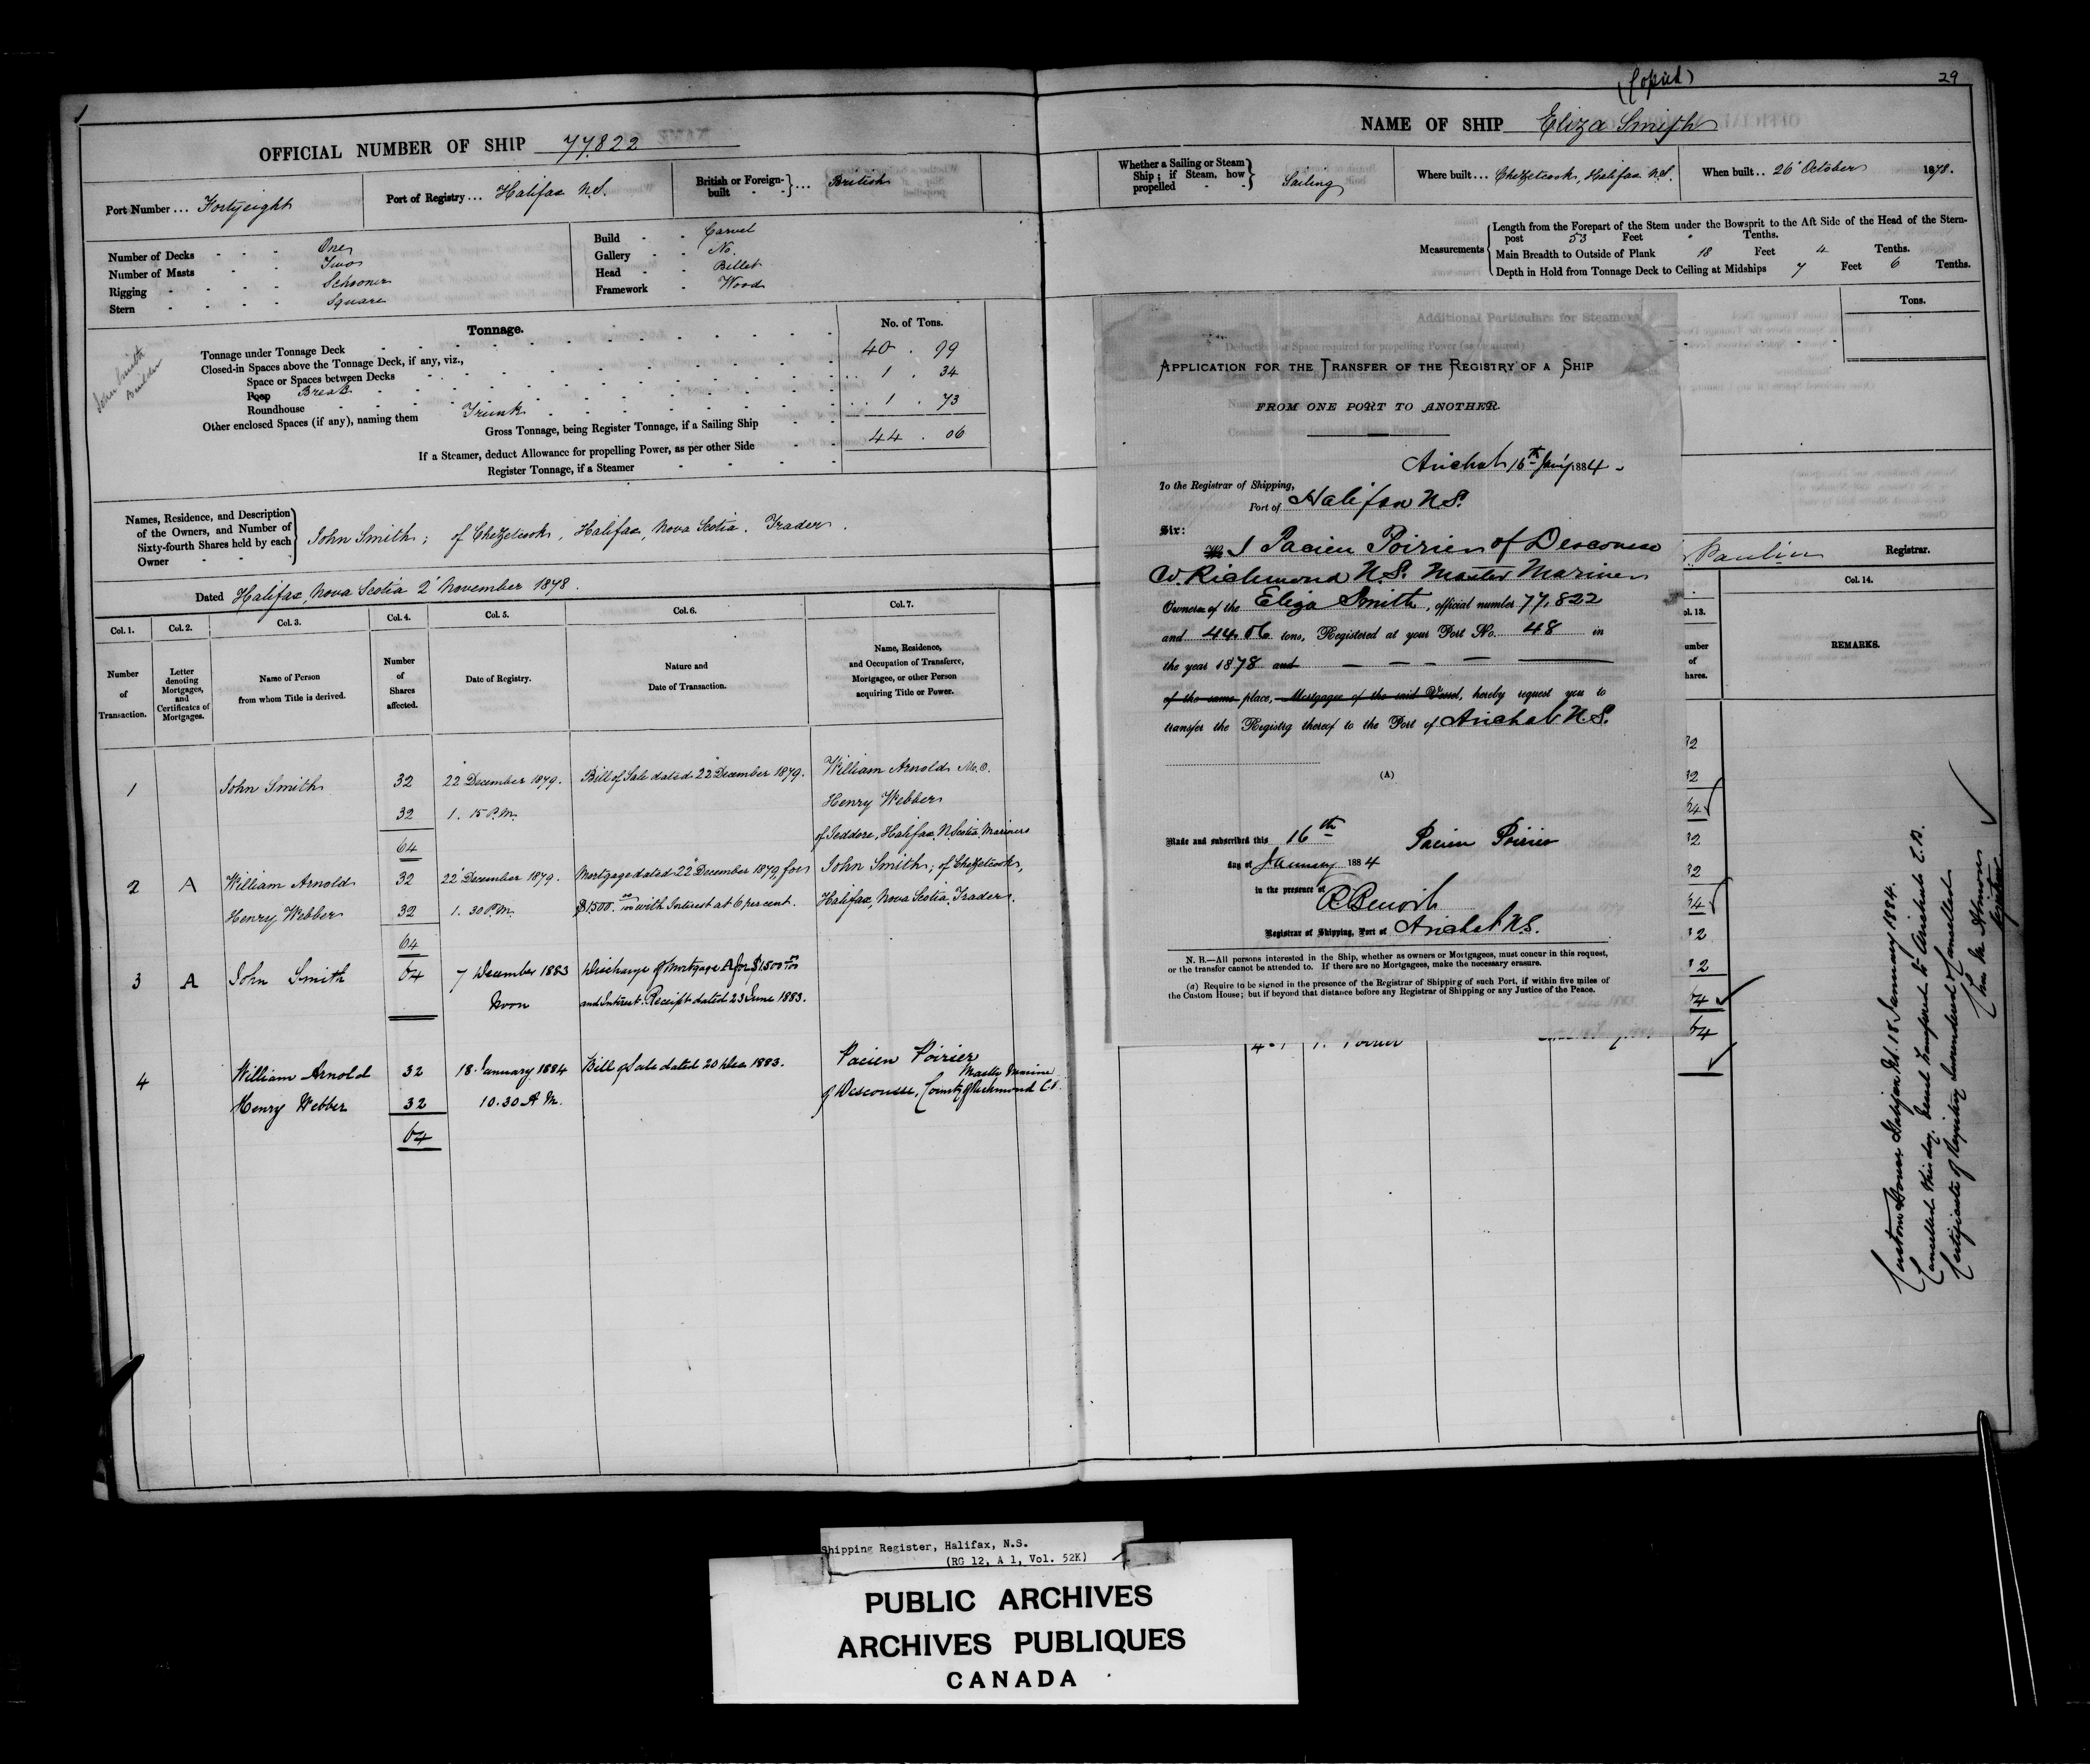 OFFICIAL NUMBER OF SHIP 77.822
Port Number ... Forty eight
Port of Registry ... Halifax N.S.
British or Foreign-built } ... British
Number of Decks - One
Number of Masts - Two
Rigging - Schooner
Stern - Square
Build - Carvel
Gallery - No.
Head - Billet
Framework - Wood
John Smith
Builder
Tonnage.
No. of Tons.
Tonnage under Tonnage Deck 40 . 99
Closed-in Spaces above the Tonnage Deck, if any, viz.,
Space or Spaces between Decks
Poop Break 1 . 34
Roundhouse
Other enclosed Spaces (if any), naming them Trunk 1 . 73
Gross Tonnage, being Register Tonnage, if a Sailing Ship 44 . 06
If a Steamer, deduct Allowance for propelling Power, as per other Side
Register Tonnage, if a Steamer
Names, Residence, and Description
of the Owners, and Number of
Sixty-fourth Shares held by each
Owner
John Smith; of Chezetcook, Halifax, Nova Scotia. Trader.
Dated Halifax, Nova Scotia 2 November 1878.
Col. 1. Col. 2. Col. 3. Col. 4. Col. 5. Col. 6. Col. 7.
Number of Transaction.
Letter denoting Mortgages, and Certificates of Mortgages.
Name of Person from whom Title is derived.
Number of Shares affected.
Date of Registry.
Nature and Date of Transaction.
Name, Residence, and Occupation of Transferee, Mortgagee, or other Person acquiring Title or Power.
1 John Smith 32 22 December 1879. Bill of Sale dated 22 December 1879. William Arnold M.O.
32 1. 15 P.M. Henry Webber
64 of Jeddore, Halifax, N. Scotia Mariners
2 A William Arnold 32 22 December 1879. Mortgage dated 22 December 1879, for John Smith; of Chezetcook,
Henry Webber 32 1. 30 P.M. $1500. 00/100 with Interest at 6 per cent. Halifax, Nova Scotia. Trader.
64
3 A John Smith 64 7 December 1883 Discharge of Mortgage A for $1500 00/100
Noon and Interest. Receipt dated 23 June 1883.
4 William Arnold 32 18 January 1884 Bill of Sale dated 20 Dec 1883. Pacien Poirier
Master Marine
Henry Webber 32 10.30 A.M. of Descousse, County of Richmond C.B.
64
(Copied)
29
NAME OF SHIP Eliza Smith
Whether a Sailing or Steam Ship; if Steam, how propelled } Sailing
Where built ... Chezetcook, Halifax N.S.
When built .. 26 October 1878.
Measurements
Length from the Forepart of the Stem under the Bowsprit to the Aft Side of the Head of the Stern-
post 53 Feet Tenths.
Main Breadth to Outside of Plank 18 Feet 4 Tenths.
Depth in Hold from Tonnage Deck to Ceiling at Midships 7 Feet 6 Tenths.
Additional Particulars for Steamers
Tons.
APPLICATION FOR THE TRANSFER OF THE REGISTRY OF A SHIP
FROM ONE PORT TO ANOTHER.
Arichat 16th Jan'y 1884
To the Registrar of Shipping,
Port of Halifax N.S.
Sir:
We I Pacien Poirier of Descousse
W. Richmond N.S. Master Mariner
Owner of the Eliza Smith, official number 77,822
and 44.06 tons, Registered at your Port No. 48 in
the year 1878 and
of the same place, Mortgagee of the said Vessel, hereby request you to
transfer the Registry thereof to the Port of Arichat N.S.
(A)
Made and subscribed this 16th
day of January 1884
Pacien Poirier
in the presence of
R Benoit
Registrar of Shipping, Port of Arichat N.S.
N. B.—All persons interested in the Ship, whether as owners or Mortgagees, must concur in this request,
or the transfer cannot be attended to. If there are no Mortgagees, make the necessary erasure.
(a) Require to be signed in the presence of the Registrar of Shipping of such Port, if within five miles of
the Custom House; but if beyond that distance before any Registrar of Shipping or any Justice of the Peace.
P. Poirier
Paulin Registrar.
ol. 13. Col. 14.
umber
of
hares.
REMARKS.
32
32
64
32
32
64
32
32
64
64
Custom House Halifax N.S. 18 January 1884.
Cancelled this day. Vessel transferred to Arichat C.B.
Certificate of Registry surrendered & cancelled
Registrar
Shipping Register, Halifax, N.S.
(RG 12, A 1, Vol. 52K)
PUBLIC ARCHIVES
ARCHIVES PUBLIQUES
CANADA